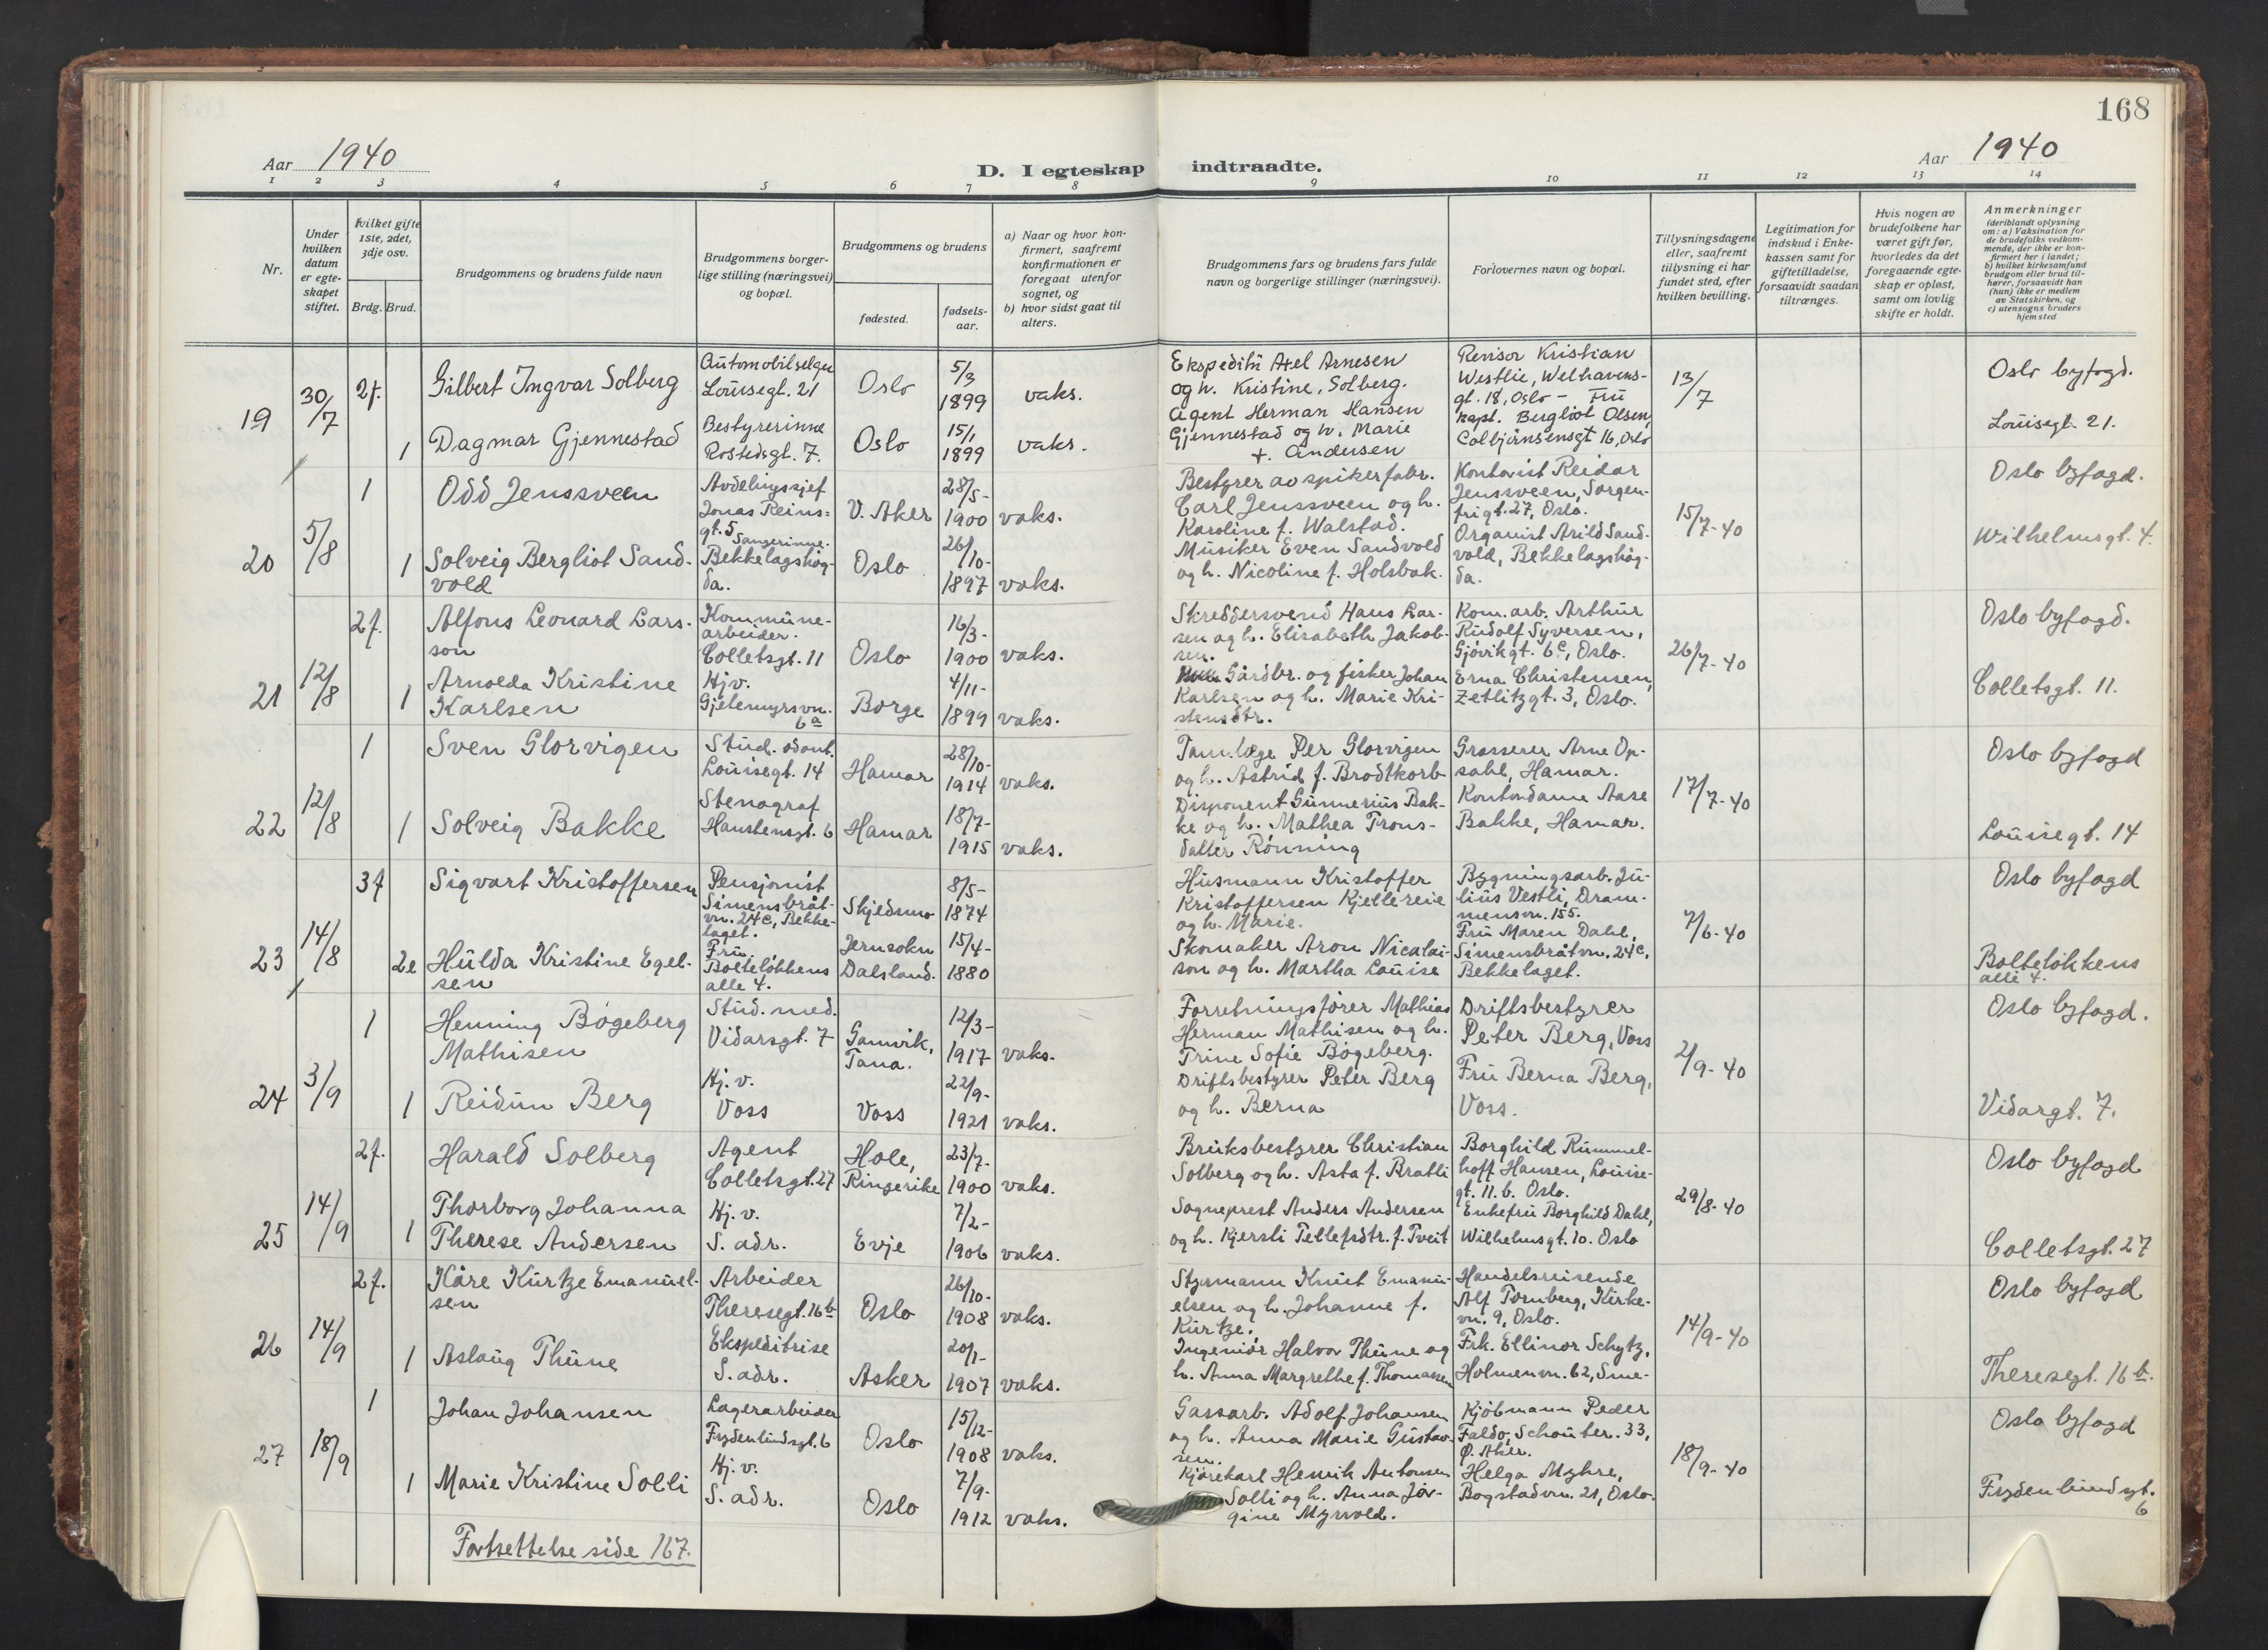 168
Aar 1940
D. I egteskap indtraadte.
Aar 1940
1 2 3 4 5 6 7 8 9 10 11 12 13 14
Nr.
Under
hvilken
datum
er egte-
skapet
stiftet.
Hvilket gifte
1ste, 2det,
3dje osv.
Brdg. Brud.
Brudgommens og brudens fulde navn
Brudgommens borger-
lige stilling (næringsvei)
og bopæl.
Brudgommens og brudens
fødested.
fødsels-
aar.
a) Naar og hvor kon-
firmert, saafremt
konfirmationen er
foregaat utenfor
sognet, og
b) hvor sidst gaat til
alters.
Brudgommens fars og brudens fars fulde
navn og borgerlige stillinger (næringsvei).
Forlovernes navn og bopæl.
Tillysningsdagene
eller, saafremt
tillysning ei har
fundet sted, efter
hvilken bevilling.
Legitimation for
indskud i Enke-
kassen samt for
giftetilladelse,
forsaavidt saadan
tiltrænges.
Hvis nogen av
brudefolkene har
været gift før,
hvorledes da det
foregaaende egte-
skap er opløst,
samt om lovlig
skifte er holdt.
Anmerkninger
(deriblandt oplysning
om: a) Vaksination for
de brudefolks vedkom-
mende, der ikke er kon-
firmert her i landet;
b) hvilket kirkesamfund
brudgom eller brud til-
hører, forsaavidt han
(hun) ikke er medlem
av Statskirken, og
c) utensogns bruders
hjemsted
19
30/7
2f.
Gilbert Ingvar Solberg
Automobilselger
Louisegt. 21
Oslo
5/3
1899
vaks.
Ekspeditør Axel Arnesen
og h. Kristine, Solberg.
Revisor Kristian
Westlie, Welhavens-
gt. 18, Oslo - Fru
13/7
Oslo byfogd.
1
Dagmar Gjennestad
Bestyrerinne
Rostedsgt. 7.
Oslo
15/1
1899
vaks.
Agent Herman Hansen
Gjennestad og h. Marie
f. Andersen
kapt. Bergliot Olsen,
Colbjørnsensgt 16, Oslo
Louisegt. 21.
20
5/8
1
Odd Jenssveen
Avdelingssjef
Jonas Reins=
gt. 5
V. Aker
28/5-
1900
vaks.
Bestyrer av spikerfabr.
Carl Jenssveen og h.
Karoline f. Walstad.
Kontorist Reidar
Jenssveen, Sorgen-
frigt. 27, Oslo.
15/7-40
Oslo byfogd.
1
Solveig Bergliot Sand-
vold
Sangerinne.
Bekkelagshøg-
da.
Oslo
26/10-
1897
vaks.
Musiker Even Sandvold
og h. Nicoline f. Holsbak.
Organist Arild Sand-
vold, Bekkelagshøg-
da.
Wilhelmsgt. 4.
21
12/8
2f.
Alfons Leonard Lars-
son
Kommune-
arbeider.
Colletsgt. 11
Oslo
16/3-
1900
vaks.
Skreddersvend Hans Lar-
sen og h. Elisabeth Jakob-
sen.
Kom. arb. Arthur
Rudolf Syversen,
Gjøvikgt. 6c, Oslo.
26/7-40
Oslo byfogd.
1
Arnolda Kristine
Karlsen
Hjv.
Gjetemyrsvn.
6a
Borge
4/11-
1899
vaks.
Gårdbr. og fisker Johan
Karlsen og h. Marie Kri-
stensdtr.
Erna Christensen,
Zetlitzgt. 3, Oslo.
Colletsgt. 11.
22
12/8
1
Sven Glorvigen
Stud. odont.
Louisegt. 14
Hamar
28/10-
1914
vaks.
Tannlæge Per Glorvigen
og h. Astrid f. Brodtkorb
Grosserer Arne Op-
sahl, Hamar.
17/7-40
Oslo byfogd
1
Solveig Bakke
Stenograf
Hanstensgt. 6
Hamar
18/7-
1915
vaks.
Disponent Gunnerius Bak-
ke og h. Mathea Trons-
datter Rønning
Kontordame Aase
Bakke, Hamar.
Louisegt. 14
23
14/8
3f
Sigvart Kristoffersen
Pensjonist
Simensbråt-
vn. 24c, Bekke-
laget.
Skjedsmo
8/5-
1874
Husmann Kristoffer
Kristoffersen Kjellereie
og h. Marie.
Bygningsarb. Ju-
lius Vestli, Dram-
mensvn. 155.
7/6-40
Oslo byfogd
2e
Hulda Kristine Egel-
sen
Fru
Bolteløkkens
alle 4.
Jernsokn
Dalsland.
15/4-
1880
Skomaker Aron Nicolai-
son og h. Martha Louise
Fru Maren Dahl,
Simensbråtvn. 24c,
Bekkelaget.
Bolteløkkens
allé 4.
24
3/9
1
Henning Bøgeberg
Mathisen
Stud. med.
Vidarsgt. 7
Gamvik,
Tana.
12/3-
1917
vaks.
Forretningsfører Mathias
Herman Mathisen og h.
Trine Sofie Bøgeberg.
Driftsbestyrer
Peter Berg, Voss
2/9-40
Oslo byfogd.
1
Reidun Berg
Hj. v.
Voss
Voss
22/9-
1921
vaks.
Driftsbestyrer Peter Berg
og h. Berna
Fru Berna Berg,
Voss.
Vidargt. 7.
25
14/9
2f.
Harald Solberg
Agent
Colletsgt. 27
Hole,
Ringerike
23/7-
1900
vaks.
Bruksbestyrer Christian
Solberg og h. Asta f. Bratli
Borghild Rummel-
hoff Hansen, Louise-
gt. 11.b. Oslo.
29/8-40
Oslo byfogd
1
Thorborg Johanna
Therese Andersen
Hj. v.
S. adr.
Evje
7/2-
1906
vaks.
Sogneprest Anders Andersen
og h. Kjersti Tellefsdtr. f. Tveit
Enkefru Borghild Dahl,
Wilhelmsgt. 10. Oslo
Colletsgt. 27
26
14/9
2f.
Kåre Kurtze Emanuel-
sen
Arbeider
Theresegt. 16b
Oslo
26/10-
1908
vaks.
Styrmann Knut Emanu-
elsen og h. Johanne f.
Kurtze.
Handelsreisende
Alf Tornberg, Kirke-
vn. 9, Oslo.
14/9-40
Oslo byfogd
1
Aslaug Thune
Ekspeditrise
S. adr.
Asker
20/1-
1907
vaks.
Ingeniør Halvor Thune og
h. Anna Margrethe f. Thomassen
Frk. Ellinor Schytz,
Holmenvn. 62, Sme-
Theresegt. 16b.
27
18/9
1
Johan Johansen
Lagerarbeider
Frydenlundsgt. 6
Oslo
15/12-
1908
vaks.
Gassarb. Adolf Johansen
og h. Anna Marie Gustav-
sen.
Kjøbmann Peder
Faldo, Schouter. 33,
Ø. Aker.
18/9-40
Oslo byfogd
1
Marie Kristine Solli
Hj. v.
S. adr.
Oslo
7/9-
1912
vaks.
Kjørekarl Henrik Antonsen
Solli og h. Anna Jør-
gine Myrvold.
Helga Myhre,
Bogstadvn. 21, Oslo.
Frydenlundsgt.
6
Fortsettelse side 167.